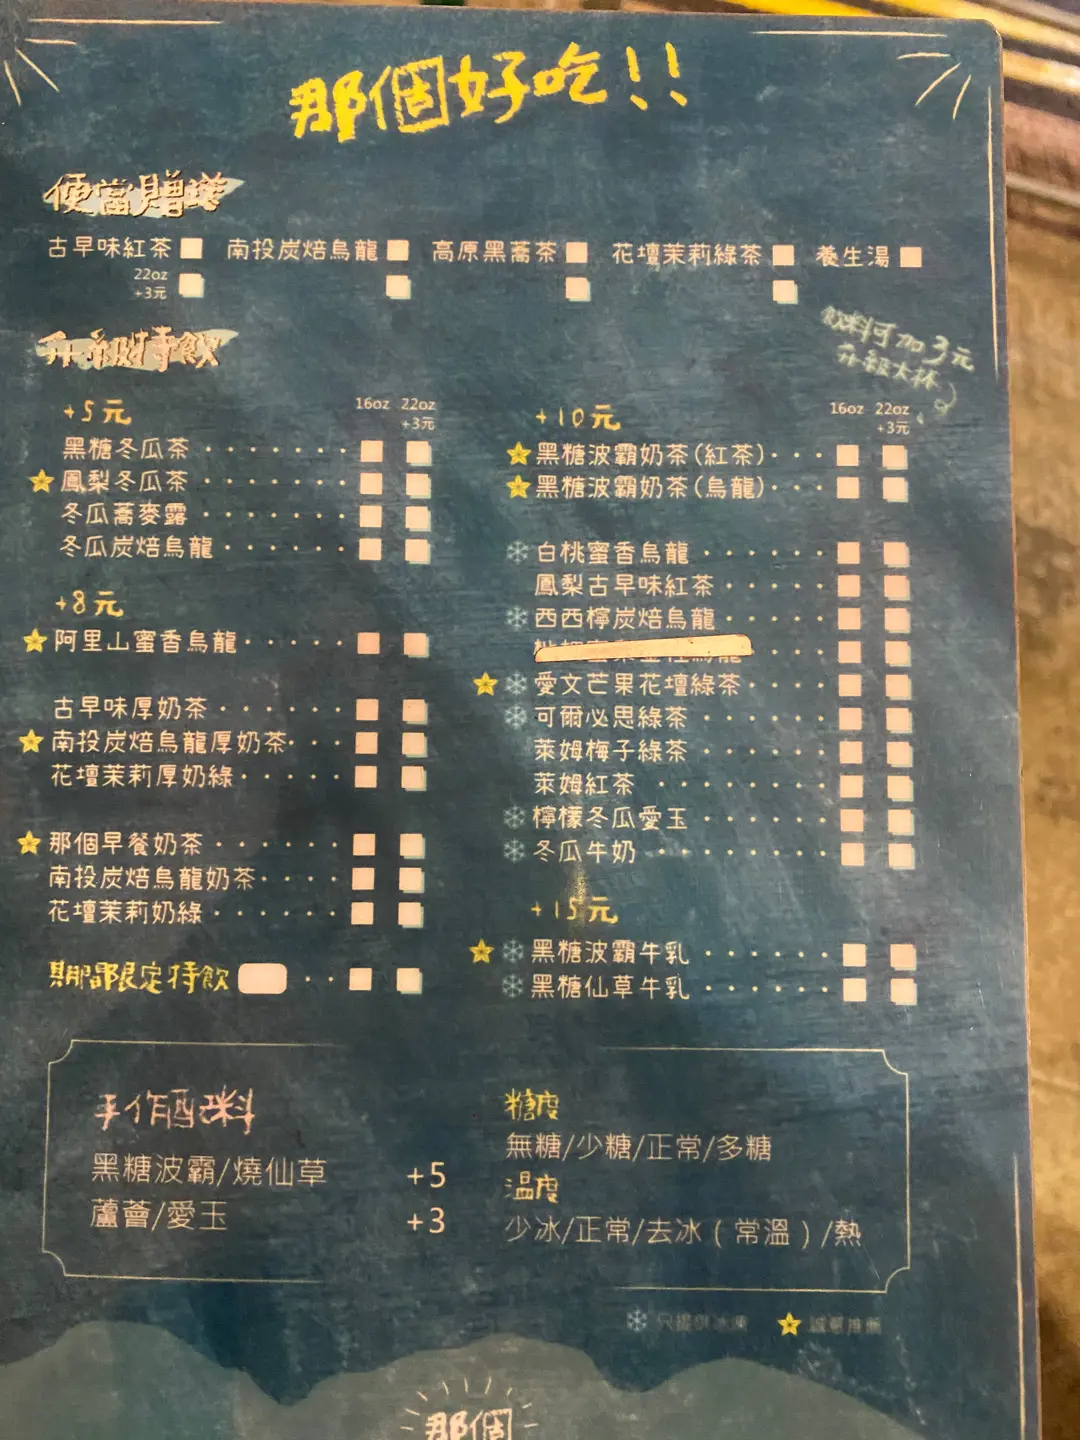 那個好吃!!
便當贈送
古早味紅茶 南投炭焙烏龍 高原黑蕎茶 花壇茉莉綠茶 養生湯
22oz
+3元
飲料可加3元
升級大杯
升級特飲
+5元 16oz 22oz
+3元
黑糖冬瓜茶
鳳梨冬瓜茶
冬瓜蕎麥露
冬瓜炭焙烏龍
+8元
阿里山蜜香烏龍
古早味厚奶茶
南投炭焙烏龍厚奶茶
花壇茉莉厚奶綠
那個早餐奶茶
南投炭焙烏龍奶茶
花壇茉莉奶綠
期間限定特飲
+10元 16oz 22oz
+3元
黑糖波霸奶茶(紅茶)
黑糖波霸奶茶(烏龍)
白桃蜜香烏龍
鳳梨古早味紅茶
西西檸炭焙烏龍
愛文芒果花壇綠茶
可爾必思綠茶
萊姆梅子綠茶
萊姆紅茶
檸檬冬瓜愛玉
冬瓜牛奶
+15元
黑糖波霸牛乳
黑糖仙草牛乳
手作配料
黑糖波霸/燒仙草 +5
蘆薈/愛玉 +3
糖度
無糖/少糖/正常/多糖
溫度
少冰/正常/去冰(常溫)/熱
只提供冰凍 誠摯推薦
那個